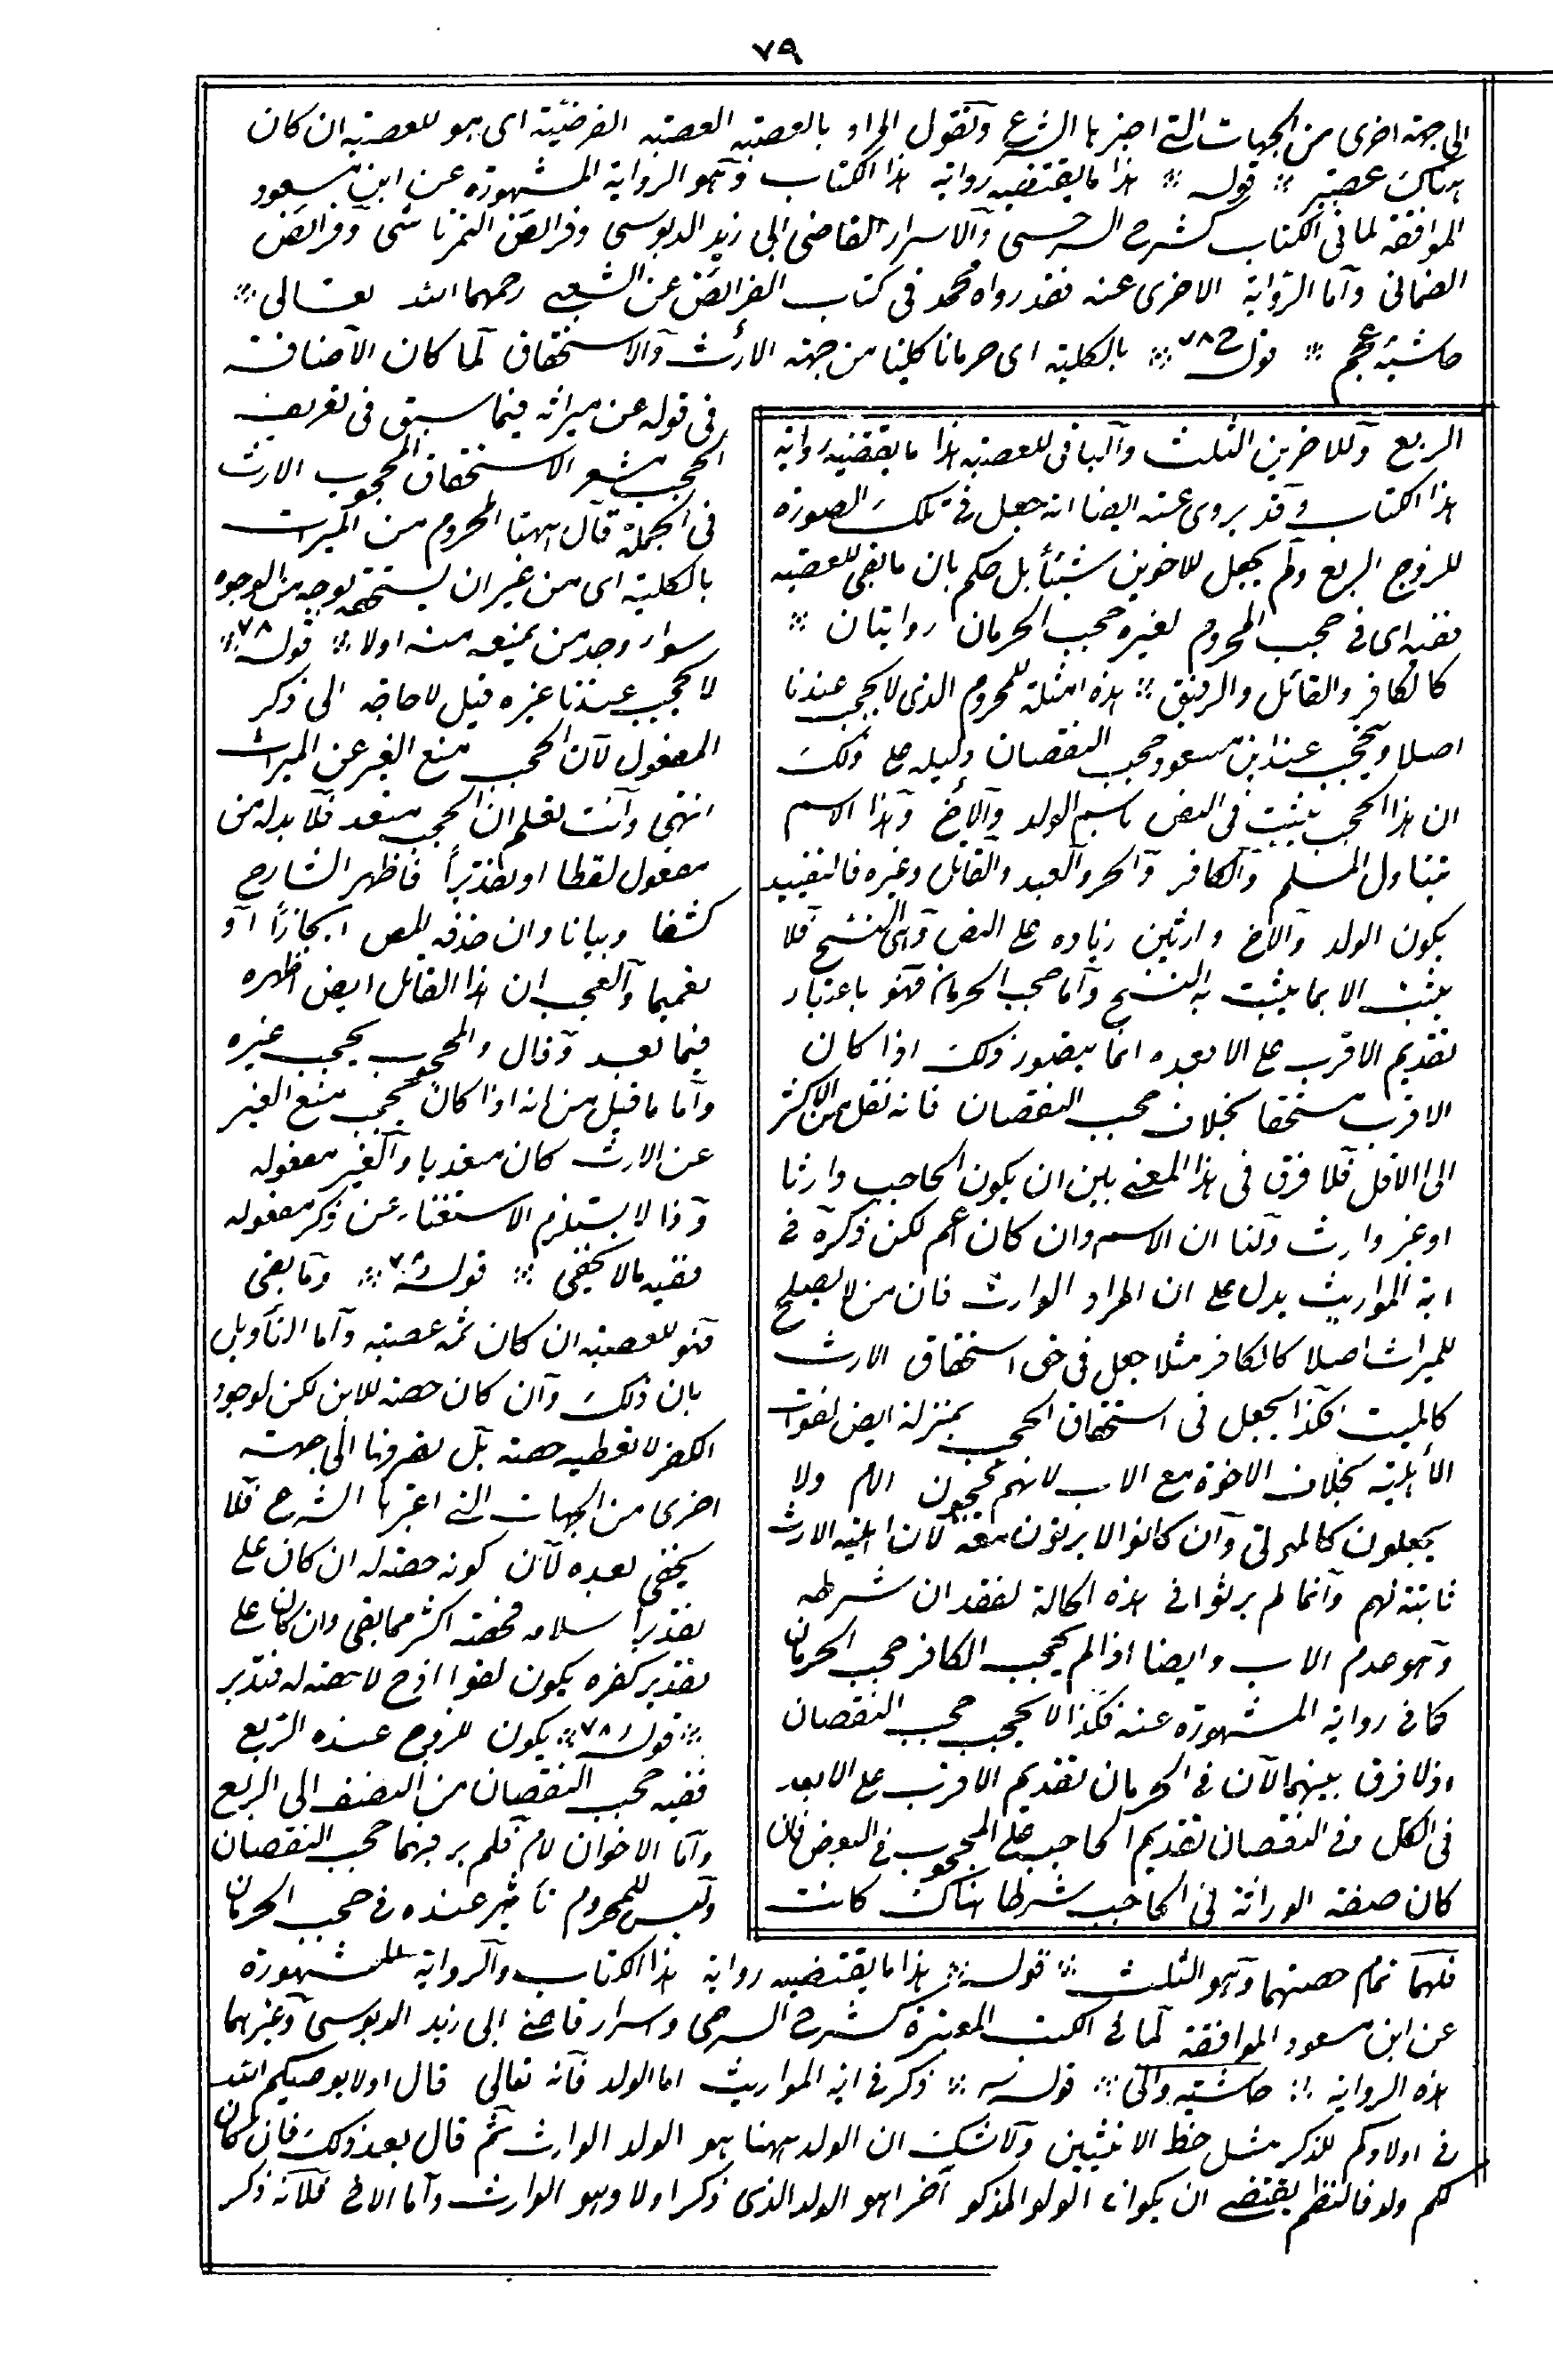 ٧٩
الى جهة اخرى من الجهات التى اعتبرها الشرع ونقول المراد بالعصبة العصبة الفرضية اى هو للعصبة ان كان
هناك عصبة ⁘ قوله ⁘ هذا ما يقتضيه رواية هذا الكتاب وهو الرواية المشهورة عن ابن مسعود
الموافقة لما فى الكتاب كشرح السرخسى والاسرار للقاضى ابى زيد الدبوسى وفرائض التمرتاشى وفرائض
العثمانى واما الرواية الاخرى عنه فقد رواه محمد فى كتاب الفرائض عن الشعبى رحمهما الله تعالى ⁘
حاشية عجم ⁘ قوله ٧٨ ⁘ بالكلية اى حرمانا كليا من جهة الارث والاستحقاق لما كان الاضافة
الربع وللاخرين الثلث والباقى للعصبة هذا ما يقتضيه رواية
هذا الكتاب وقد يروى عنه ايضا انه جعل فى تلك الصورة
للزوج الربع ولم يجعل للاخوين شيئا بل حكم بان ما بقى للعصبة
ففيه اى فى حجب المحروم لغيره حجب الحرمان روايتان ⁘
كالكافر والقاتل والرقيق ⁘ هذه امثلة للمحروم الذى لا يحجب عندنا
اصلا ويحجب عند ابن مسعود حجب النقصان دليله على ذلك
ان هذا الحجب يثبت فى النص باسم الولد والاخ وهذا الاسم
يتناول المسلم والكافر والحر والعبد والقاتل وغيره فالتقييد
بكون الولد والاخ وارثين زيادة على النص وهى النسخ فلا
يثبت الا بما يثبت به النسخ واما حجب الحرمان فهو باعتبار
تقديم الاقرب على الابعد و انما يتصور ذلك اذا كان
الاقرب مستحقا بخلاف حجب النقصان فانه نقل من الاكثر
الى الاقل فلا فرق فى هذا المعنى بين ان يكون الحاجب وارثا
او غير وارث ولنا ان الاسم وان كان اعم لكن ذكره فى
اية المواريث يدل على ان المراد الوارث فان من لا يصلح
للميراث اصلا كالكافر مثلا جعل فى حق استحقاق الارث
كالميت فكذا يجعل فى استحقاق الحجب بمنزلة ايض لفوات
الأهلية بخلاف الاخوة مع الاب لانهم يحجبون الام ولا
يجعلون كالموتى وان كانوا لا يرثون معه لان اهلية الارث
ثابتة لهم وانما لم يرثوا فى هذه الحالة لفقدان شرطه
وهو عدم الاب وايضا اذا لم يحجب الكافر حجب الحرمان
كما فى رواية المشهورة عنه فكذا لا يحجب حجب النقصان
اذ لا فرق بينهما لان فى الحرمان تقديم الاقرب على الابعد
فى الكل وفى النقصان تقديم الحاجب على المحجوب فى البعض فان
كان صفة الوراثة فى الحاجب شرطا هناك كانت
فى قوله عن ميراثه فيما سبق فى تعريف
الحجب مشعر الاستحقاق المحجوب الارث
فى الجملة قال ههنا المحروم من الميراث
بالكلية اى من غير ان يستحقه بوجه من الوجوه
سواء وجد من يمنعه منه اولا ⁘ قوله ٧٨ ⁘
لا يحجب عندنا غيره قيل لا حاجة الى ذكر
المفعول لان الحجب منع الغير عن الميراث
انتهى وانت تعلم ان الحجب متعد فلا بد له من
مفعول لفظا او تقديرا فاظهر الشارح
كشفا وبيانا وان حذفه المص ايجازا او
تعميما والعجب ان هذا القائل ايض اظهره
فيما بعد وقال والمحجوب يحجب غيره
واما ما قيل من انه اذا كان الحجب منع الغير
عن الارث كان متعديا والغير مفعوله
وذا لا يستلزم الاستغناء عن ذكر مفعوله
ففيه ما لا يخفى ⁘ قوله ٧٨ ⁘ وما بقى
فهو للعصبة ان كان ثمه عصبة واما التأويل
بان ذلك وان كان حصة للابن لكن لوجود
الكفر لا نعطيه حصته بل نصرفها الى جهة
اخرى من الجهات التى اعتبرها الشرع فلا
يخفى بعده لان كونه حصة له ان كان على
تقدير اسلامه فحصته اكثر مما بقى وان كان على
تقدير كفره يكون لغوا اذ ح لا حصة له فتدبر
⁘ قوله ٧٨ ⁘ يكون للزوج عنده الربع
ففيه حجب النقصان من النصف الى الربع
واما الاخوان لام فلم ير فيهما حجب النقصان
وليس للمحروم تأثير عنده فى حجب الحرمان
فلهما تمام حصتهما وهو الثلث ⁘ قوله ⁘ هذا ما يقتضيه رواية هذا الكتاب والرواية المشهورة
عن ابن مسعود الموافقة لما فى الكتب المعتبرة كشرح السرخسى واسرار قاضى ابى زيد الدبوسى وغيرهما
هذه الرواية ⁘ حاشية والى ⁘ قوله ⁘ ذكر فى اية المواريث اما الولد فانه تعالى قال اولا يوصيكم الله
فى اولادكم للذكر مثل حظ الانثيين ولا شك ان الولد ههنا هو الولد الوارث ثم قال بعد ذلك فان كان
لكم ولد فالنظم يقتضى ان يكون الولد المذكور آخرا هو الولد الذى ذكر اولا وهو الوارث واما الاخ فلانه ذكر